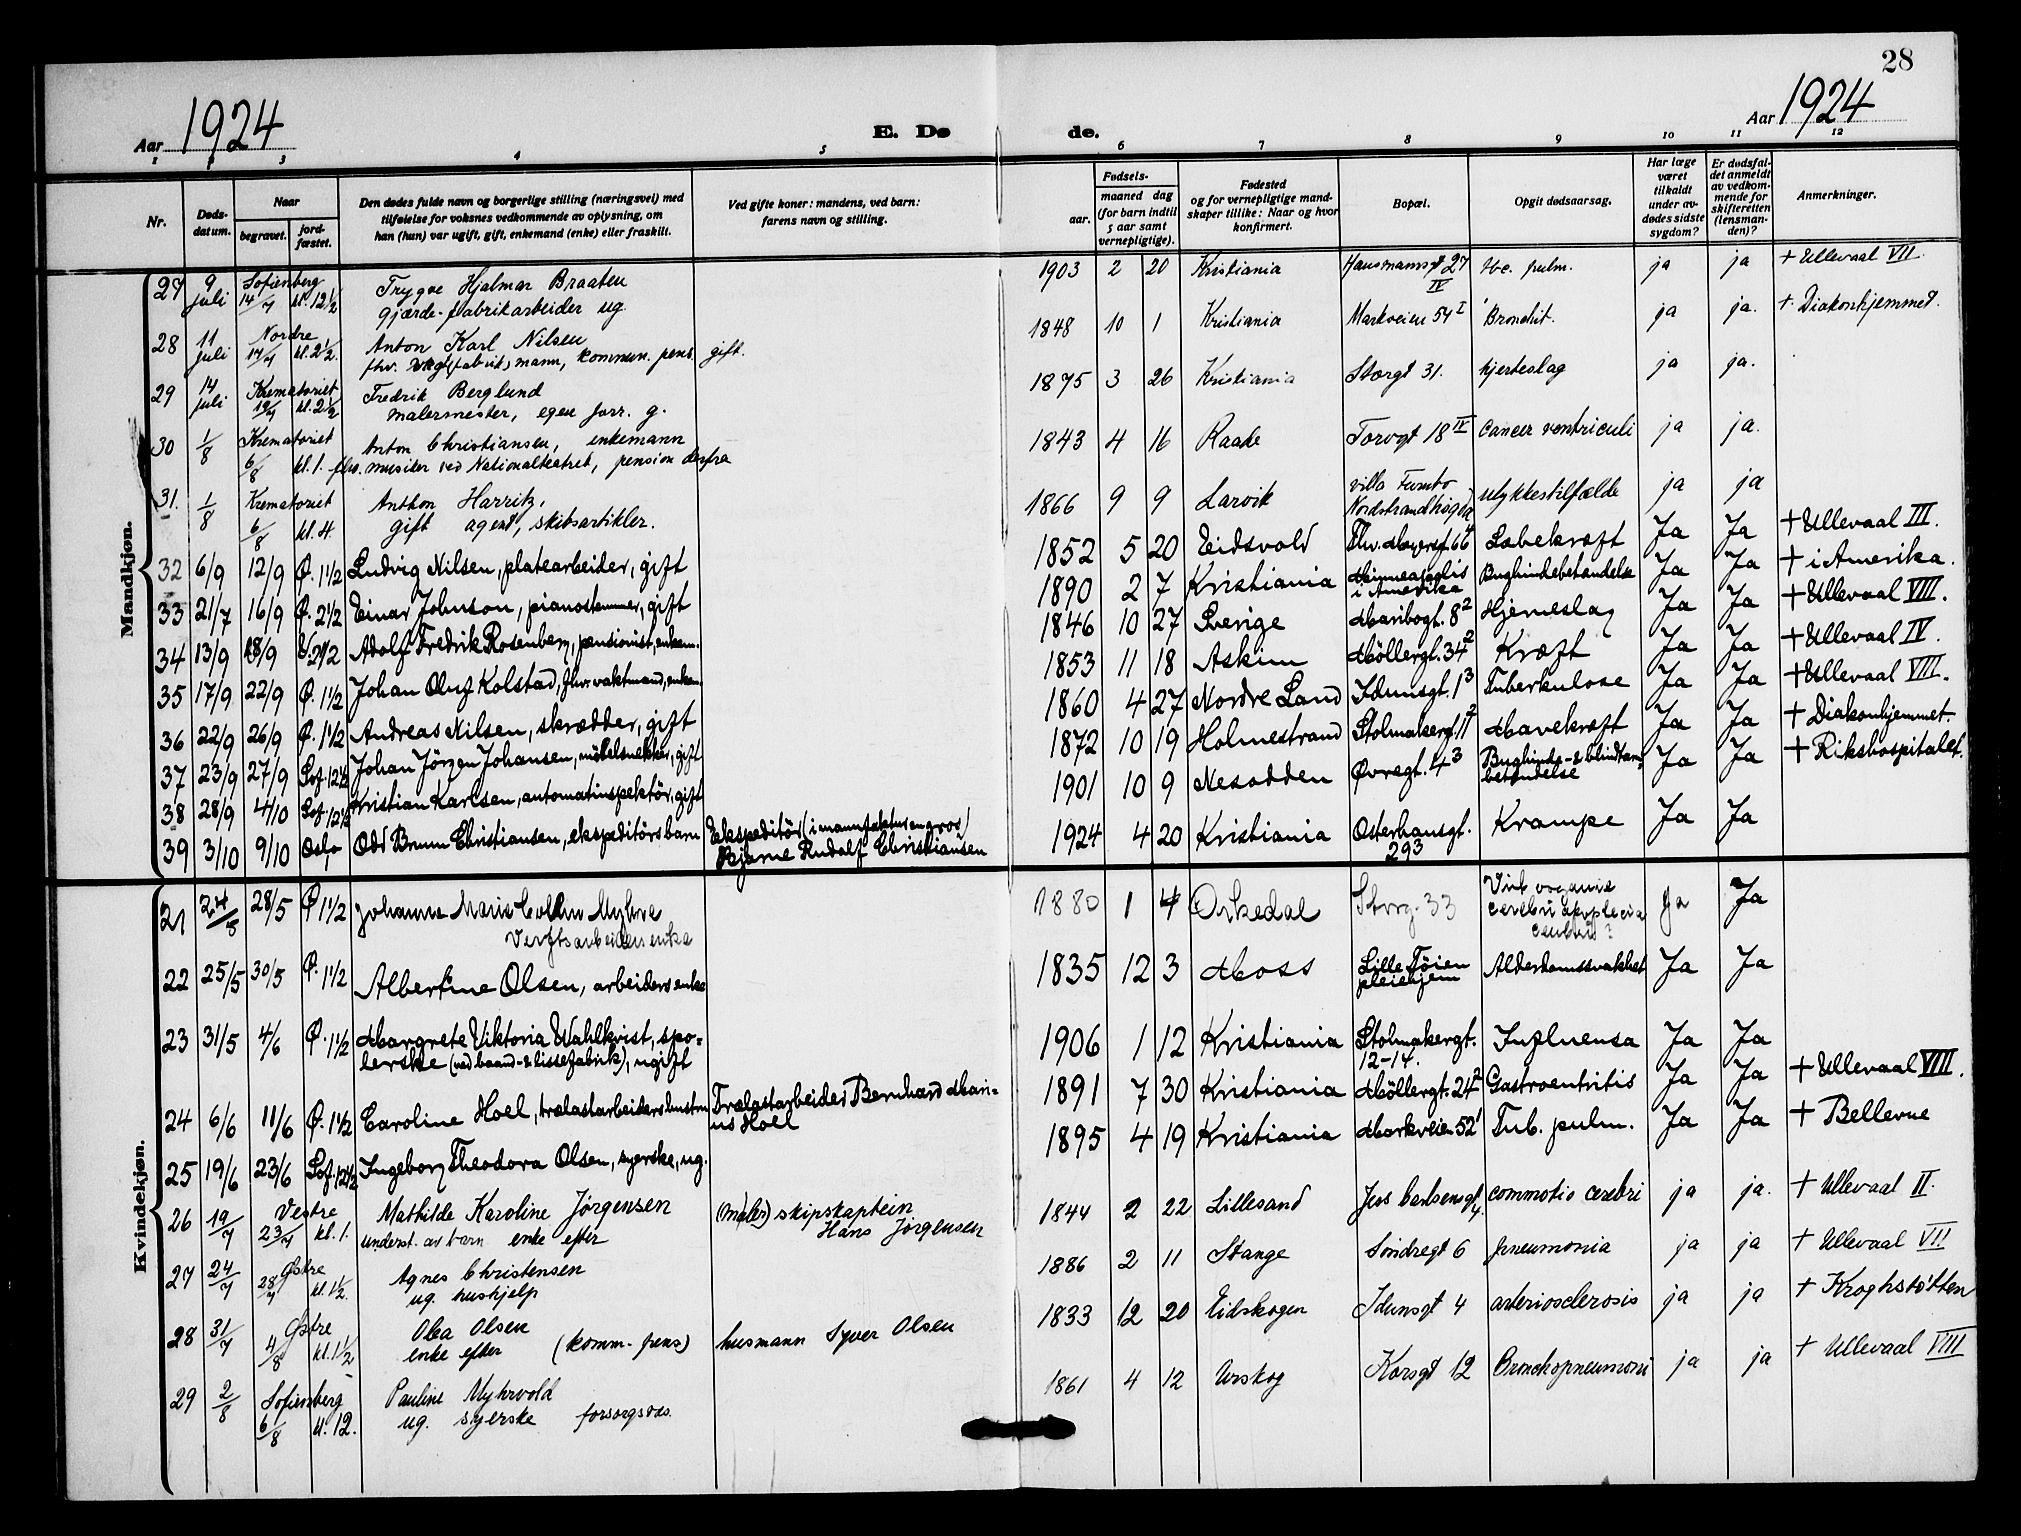 28
Aar 1924
E. Dø
de.
Aar 1924
1 2 3 4 5 6 7 8 9 10 11 12
Nr.
Døds-
datum.
Naar
begravet.
jord-
fæstet.
Den dødes fulde navn og borgerlige stilling (næringsvei) med
tilføielse for voksnes vedkommende av oplysning, om
han (hun) var ugift, gift, enkemand (enke) eller fraskilt.
Ved gifte koner: mandens, ved barn:
farens navn og stilling.
Fødsels-
aar.
maaned dag
(for barn indtil
5 aar samt
vernepligtige).
Fødested
og for vernepligtige mand-
skaper tillike: Naar og hvor
konfirmert.
Bopæl.
Opgit dødsaarsag.
Har læge
været
tilkaldt
under av-
dødes sidste
sygdom?
Er dødsfal-
det anmeldt
av vedkom-
mende for
skifteretten
(lensman-
den)?
Anmerkninger.
Mandkjøn.
27 9 juli Sofienberg 14/7 kl. 12 1/2 Trygve Hjalmar Braaten
gjærde-fabrikarbeider ug.
1903 2 20 Kristiania Hausmannsgt 27 IV tbc. pulm. ja ja + Ullevaal VII.
28 11 juli Nordre 17/7 kl. 2 1/2. Anton Karl Nilsen
fhv. mann, kommun. pens. gift.
1848 10 1 Kristiania Markveien 54 I Bronchit. ja ja. + Diakonhjemmet.
29 14 juli Krematoriet 19/7 kl. 2 1/2 Fredrik Berglund
malermester, egen forr. g.
1875 3 26 Kristiania Storgt 31. hjerteslag ja ja.
30 1/8 Krematoriet 6/8 kl. 1. Anton Christiansen, enkemann
fhv. musiker ved Nationalteatret, pension derfra
1843 4 16 Raade Torvgt 18 IV cancer ventriculi ja ja.
31. 1/8 Krematoriet 6/8 kl. 4. Anthon Harritz,
gift agent, skibsartikler.
1866 9 9 Larvik villa Nordstrandhøgda ulykkestilfælde ja ja
32 6/9 12/9 Ø. 1 1/2 Ludvig Nilsen, platearbeider, gift
1852 5 20 Eidsvold Thv. Meyersgt. 66 4 Læbekræft Ja Ja + Ullevaal III.
33 21/7 16/9 Ø. 2 1/2 Einar Johnson, pianostemmer, gift
1890 2 7 Kristiania Minneapolis i Amerika Bughindebetændelse Ja Ja + i Amerika.
34 13/9 18/9 V. 2 1/2 Adolf Fredrik Rosenberg, pensionist, enkem.
1846 10 27 Sverige Maribogt. 8 2 Hjerneslag Ja Ja + Ullevaal VIII.
35 17/9 22/9 Ø. 1 1/2 Johan Oluf Kolstad, fhv. vaktmand, enkem.
1853 11 18 Askim Möllergt. 34 2 Kræft Ja Ja + Ullevaal IV.
36 22/9 26/9 Ø. 1 1/2 Andreas Nilsen, skrædder, gift
1860 4 27 Nordre Land Idunsgt. 1 3 Tuberkulose Ja Ja + Ullevaal VIII.
37 23/9 27/9 Sof. 12 1/2 Johan Jörgen Johansen, möbelsnekker, gift
1872 10 19 Holmestrand Stolmakergt. 11 2 Mavekræft Ja Ja + Diakonhjemmet.
38 28/9 4/10 Sof. 12 1/2 Kristian Karlsen, automatinspektör, gift
1901 10 9 Nesodden Øvregt. 4 3 Bughinde- & blindtarmbetændelse Ja Ja + Rikshospitalet.
39 3/10 9/10 Oslo Odd Brum Christiansen, ekspeditörs barn Ekspeditör (i manufaktur en gros)
Bjarne Rudolf Christiansen
1924 4 20 Kristiania Osterhausgt. 29 3 Krampe Ja Ja
Kvindekjøn.
21 24/5 28/5 Ø 1 1/2 Johanne Marie
Verftsarbeiders enke
1880 1 4 Orkedal Storg. 33 Vit. organic cerebri apoplecia cerebri? Ja Ja
22 25/5 30/5 Ø. 1 1/2 Albertine Olsen, arbeiders enke
1835 12 3 Moss Lille Töien pleiehjem Alderdomssvakhet Ja Ja
23 31/5 4/6 Ø. 1 1/2 Margrete Viktoria Wahlkvist, spo-
lerske (ved baand- & lissefabrik), ugift
1906 1 12 Kristiania Stolmakergt. 12-14. Influensa Ja Ja
24 6/6 11/6 Ø. 1 1/2 Caroline Hoel, trælastarbeiders hustru Trælastarbeider Bernhard Mari-
us Hoel
1891 7 30 Kristiania Möllergt. 24 2 Gastroentritis Ja Ja + Ullevaal VIII.
25 19/6 23/6 Sof. 12 1/2 Ingeborg Theodora Olsen, syerske, ug.
1895 4 19 Kristiania Markveien 52 1 Tub. pulm. Ja Ja + Bellevue
26 19/7 Vestre 23/7 kl. 1. Mathilde Karoline Jørgensen
underst. av barn enke efter (maler) skipskaptein
Hans Jørgensen
1844 2 22 Lillesand Jess Carlsensgt 4. commotio cerebri ja ja. + Ullevaal II.
27 24/7 Østre 28/7 kl. 1 1/2. Agnes Christensen
ug. hushjelp
1886 2 11 Stange Söndregt 6 pneumonia ja ja + Ullevaal VII
28 31/7 Østre 4/8 kl. 1 1/2 Olea Olsen
enke efter (komm. pens) husmann Syver Olsen
1833 12 20 Eidskogen Idunsgt 4 arteriosclerosis ja ja + Kroghstötten
29 2/8 Sofienberg 6/8 kl. 12. Pauline Myhrvold
ug. syerske forsorgsvæs.
1861 4 12 Urskog Korsgt 12 Bronchopneumoni ja ja + Ullevaal VIII